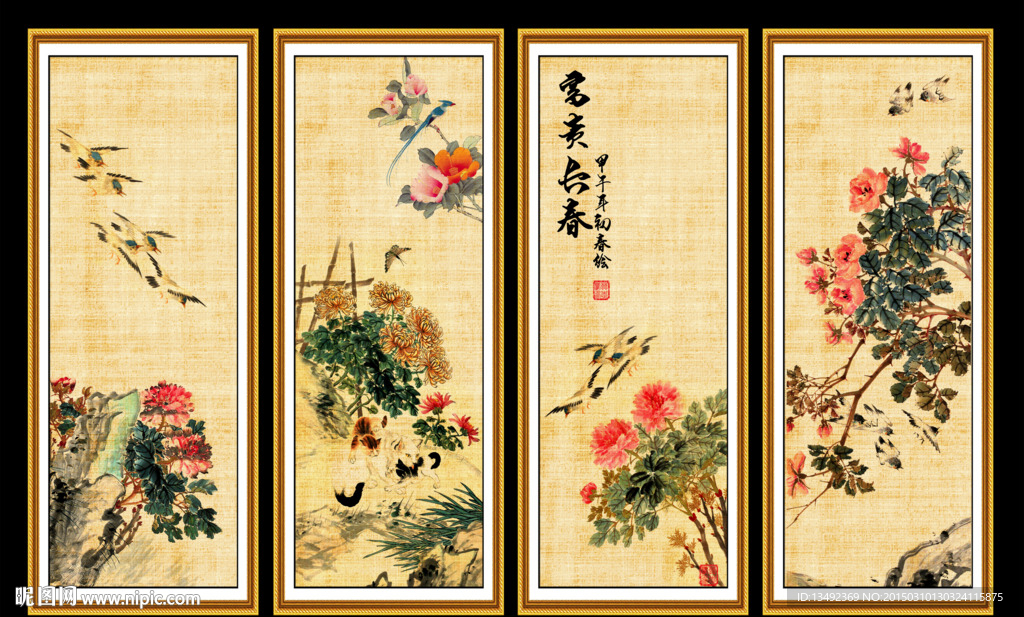 富贵长春
甲午年初春绘
昵图网 www.nipic.com
ID:13492369 NO:20150310130324115875